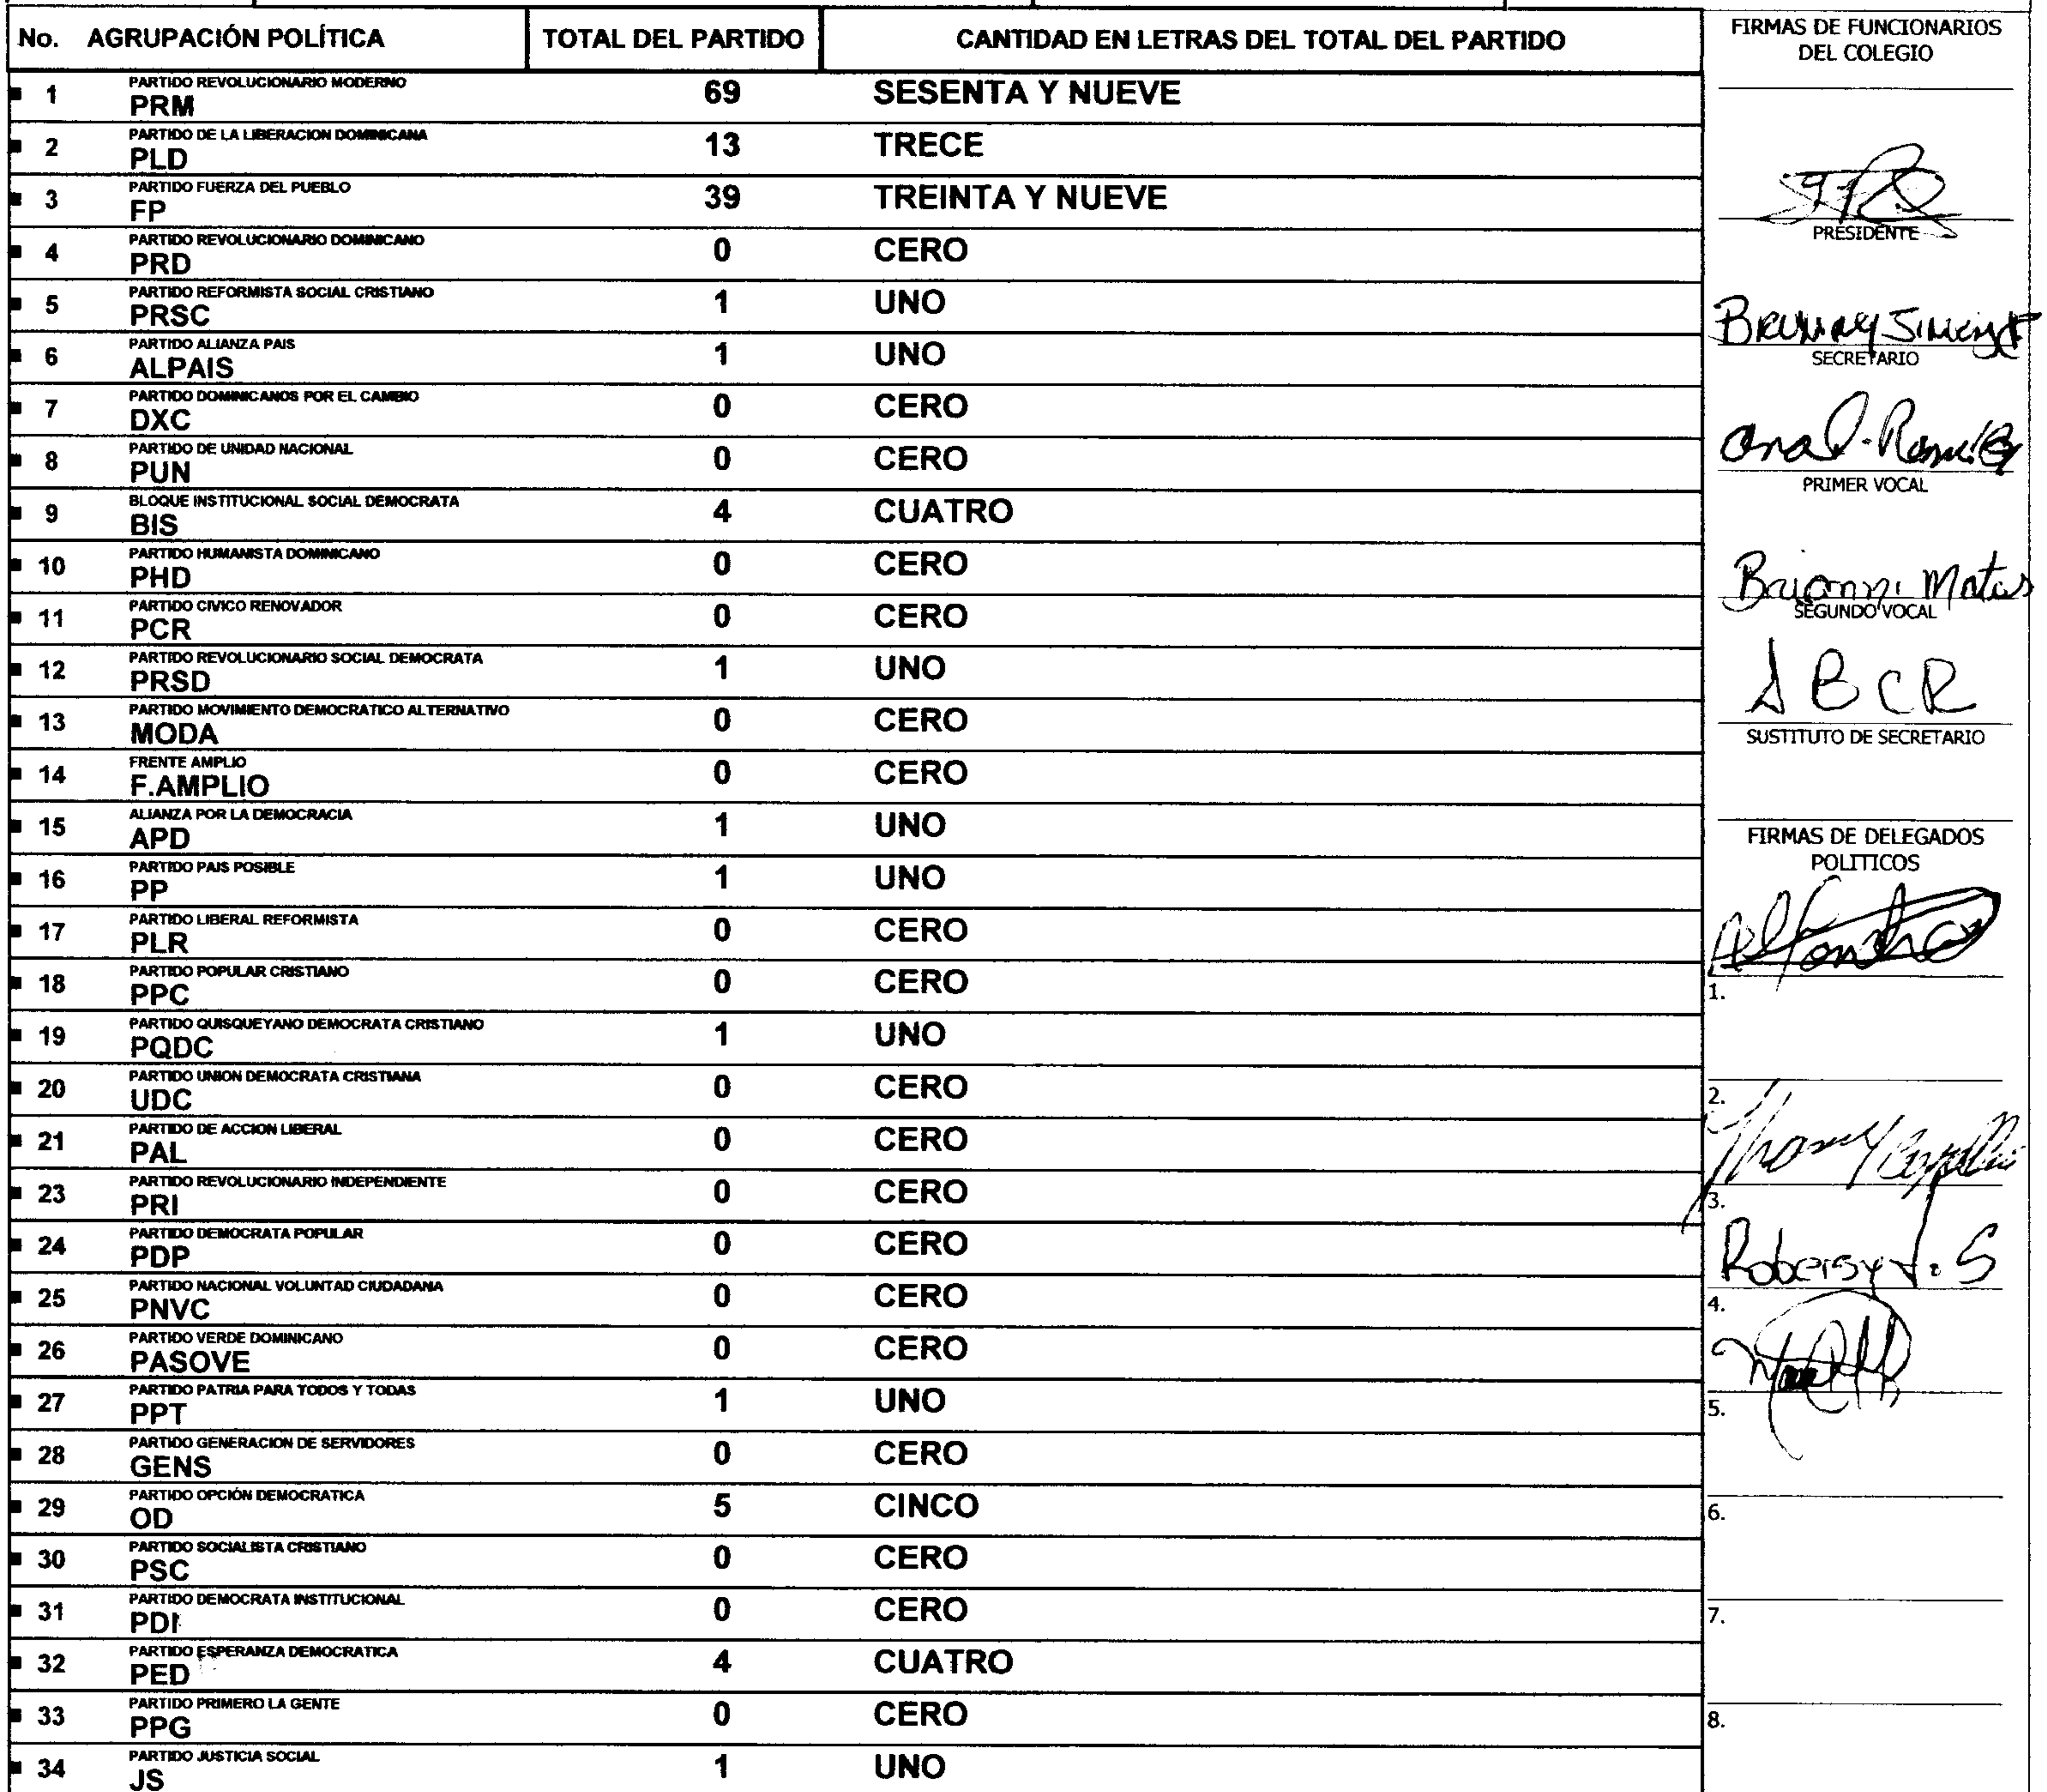 No. AGRUPACIÓN POLÍTICA TOTAL DEL PARTIDO CANTIDAD EN LETRAS DEL TOTAL DEL PARTIDO
PARTIDO REVOLUCIONARIO MODERNO
1 PRM 69 SESENTA Y NUEVE
PARTIDO DE LA LIBERACION DOMINICANA
2 PLD 13 TRECE
PARTIDO FUERZA DEL PUEBLO
3 FP 39 TREINTA Y NUEVE
PARTIDO REVOLUCIONARIO DOMINICANO
4 PRD 0 CERO
PARTIDO REFORMISTA SOCIAL CRISTIANO
5 PRSC 1 UNO
PARTIDO ALIANZA PAIS
6 ALPAIS 1 UNO
PARTIDO DOMINICANOS POR EL CAMBIO
7 DXC 0 CERO
PARTIDO DE UNIDAD NACIONAL
8 PUN 0 CERO
BLOQUE INSTITUCIONAL SOCIAL DEMOCRATA
9 BIS 4 CUATRO
PARTIDO HUMANISTA DOMINICANO
10 PHD 0 CERO
PARTIDO CIVICO RENOVADOR
11 PCR 0 CERO
PARTIDO REVOLUCIONARIO SOCIAL DEMOCRATA
12 PRSD 1 UNO
PARTIDO MOVIMIENTO DEMOCRATICO ALTERNATIVO
13 MODA 0 CERO
FRENTE AMPLIO
14 F.AMPLIO 0 CERO
ALIANZA POR LA DEMOCRACIA
15 APD 1 UNO
PARTIDO PAIS POSIBLE
16 PP 1 UNO
PARTIDO LIBERAL REFORMISTA
17 PLR 0 CERO
PARTIDO POPULAR CRISTIANO
18 PPC 0 CERO
PARTIDO QUISQUEYANO DEMOCRATA CRISTIANO
19 PQDC 1 UNO
PARTIDO UNION DEMOCRATA CRISTIANA
20 UDC 0 CERO
PARTIDO DE ACCION LIBERAL
21 PAL 0 CERO
PARTIDO REVOLUCIONARIO INDEPENDIENTE
23 PRI 0 CERO
PARTIDO DEMOCRATA POPULAR
24 PDP 0 CERO
PARTIDO NACIONAL VOLUNTAD CIUDADANA
25 PNVC 0 CERO
PARTIDO VERDE DOMINICANO
26 PASOVE 0 CERO
PARTIDO PATRIA PARA TODOS Y TODAS
27 PPT 1 UNO
PARTIDO GENERACION DE SERVIDORES
28 GENS 0 CERO
PARTIDO OPCIÓN DEMOCRATICA
29 OD 5 CINCO
PARTIDO SOCIALISTA CRISTIANO
30 PSC 0 CERO
PARTIDO DEMOCRATA INSTITUCIONAL
31 PDI 0 CERO
PARTIDO ESPERANZA DEMOCRATICA
32 PED 4 CUATRO
PARTIDO PRIMERO LA GENTE
33 PPG 0 CERO
PARTIDO JUSTICIA SOCIAL
34 JS 1 UNO
FIRMAS DE FUNCIONARIOS
DEL COLEGIO
PRESIDENTE
SECRETARIO
PRIMER VOCAL
Matos
SEGUNDO VOCAL
ABCR
SUSTITUTO DE SECRETARIO
FIRMAS DE DELEGADOS
POLITICOS
1.
2.
3.
4.
5.
6.
7.
8.